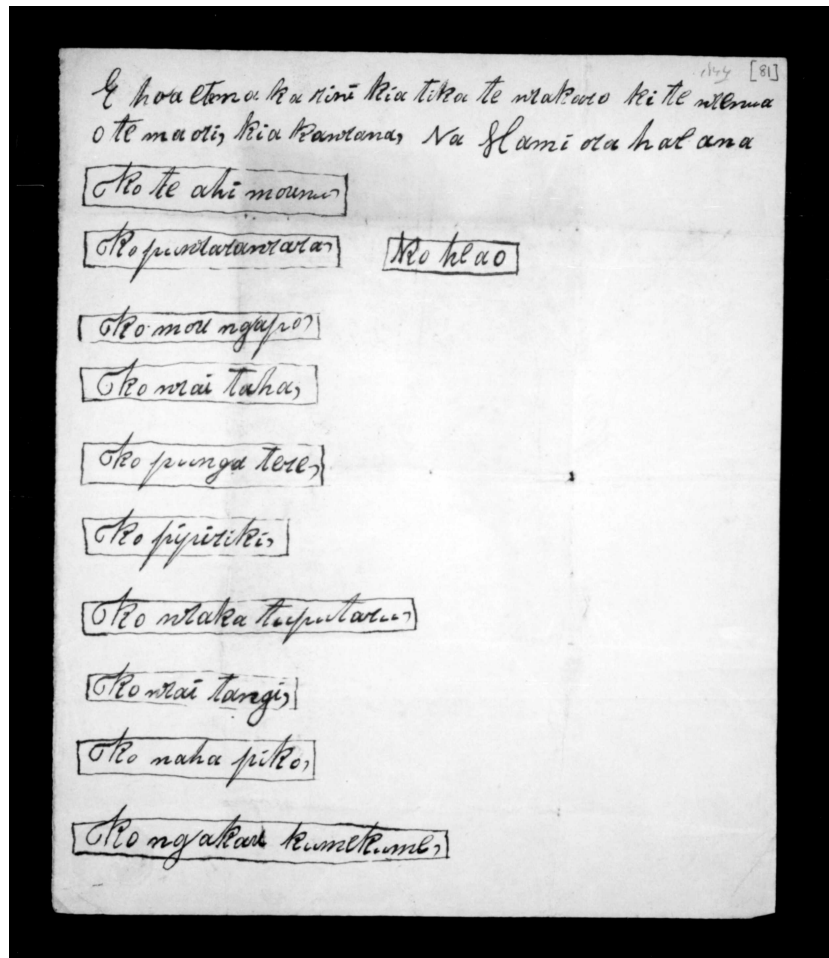 [81]
E hoa etma ka rini kia tika te wakaro ki te wenua
o te maori, kia kawana, Na Hami ora hae ana
Ko te ahi mounu,
Ko puwarawara, Ko heao
Ko mou ngapo,
Ko wai taha,
Ko punga tere,
Ko pipiriki,
Ko waka tuputaru,
Ko wai tangi,
Ko naha piko,
Ko ngakau kumekume,